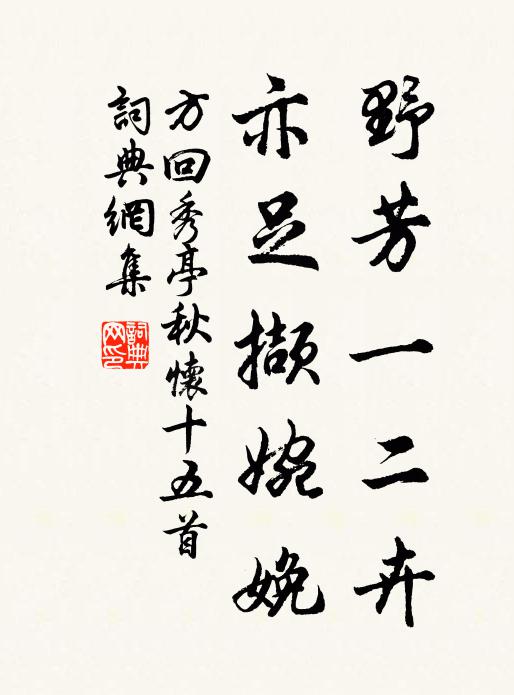 野芳一二卉
亦足擷婉娩
方回秀亭秋懷十五首
詞典網集
詞典網印